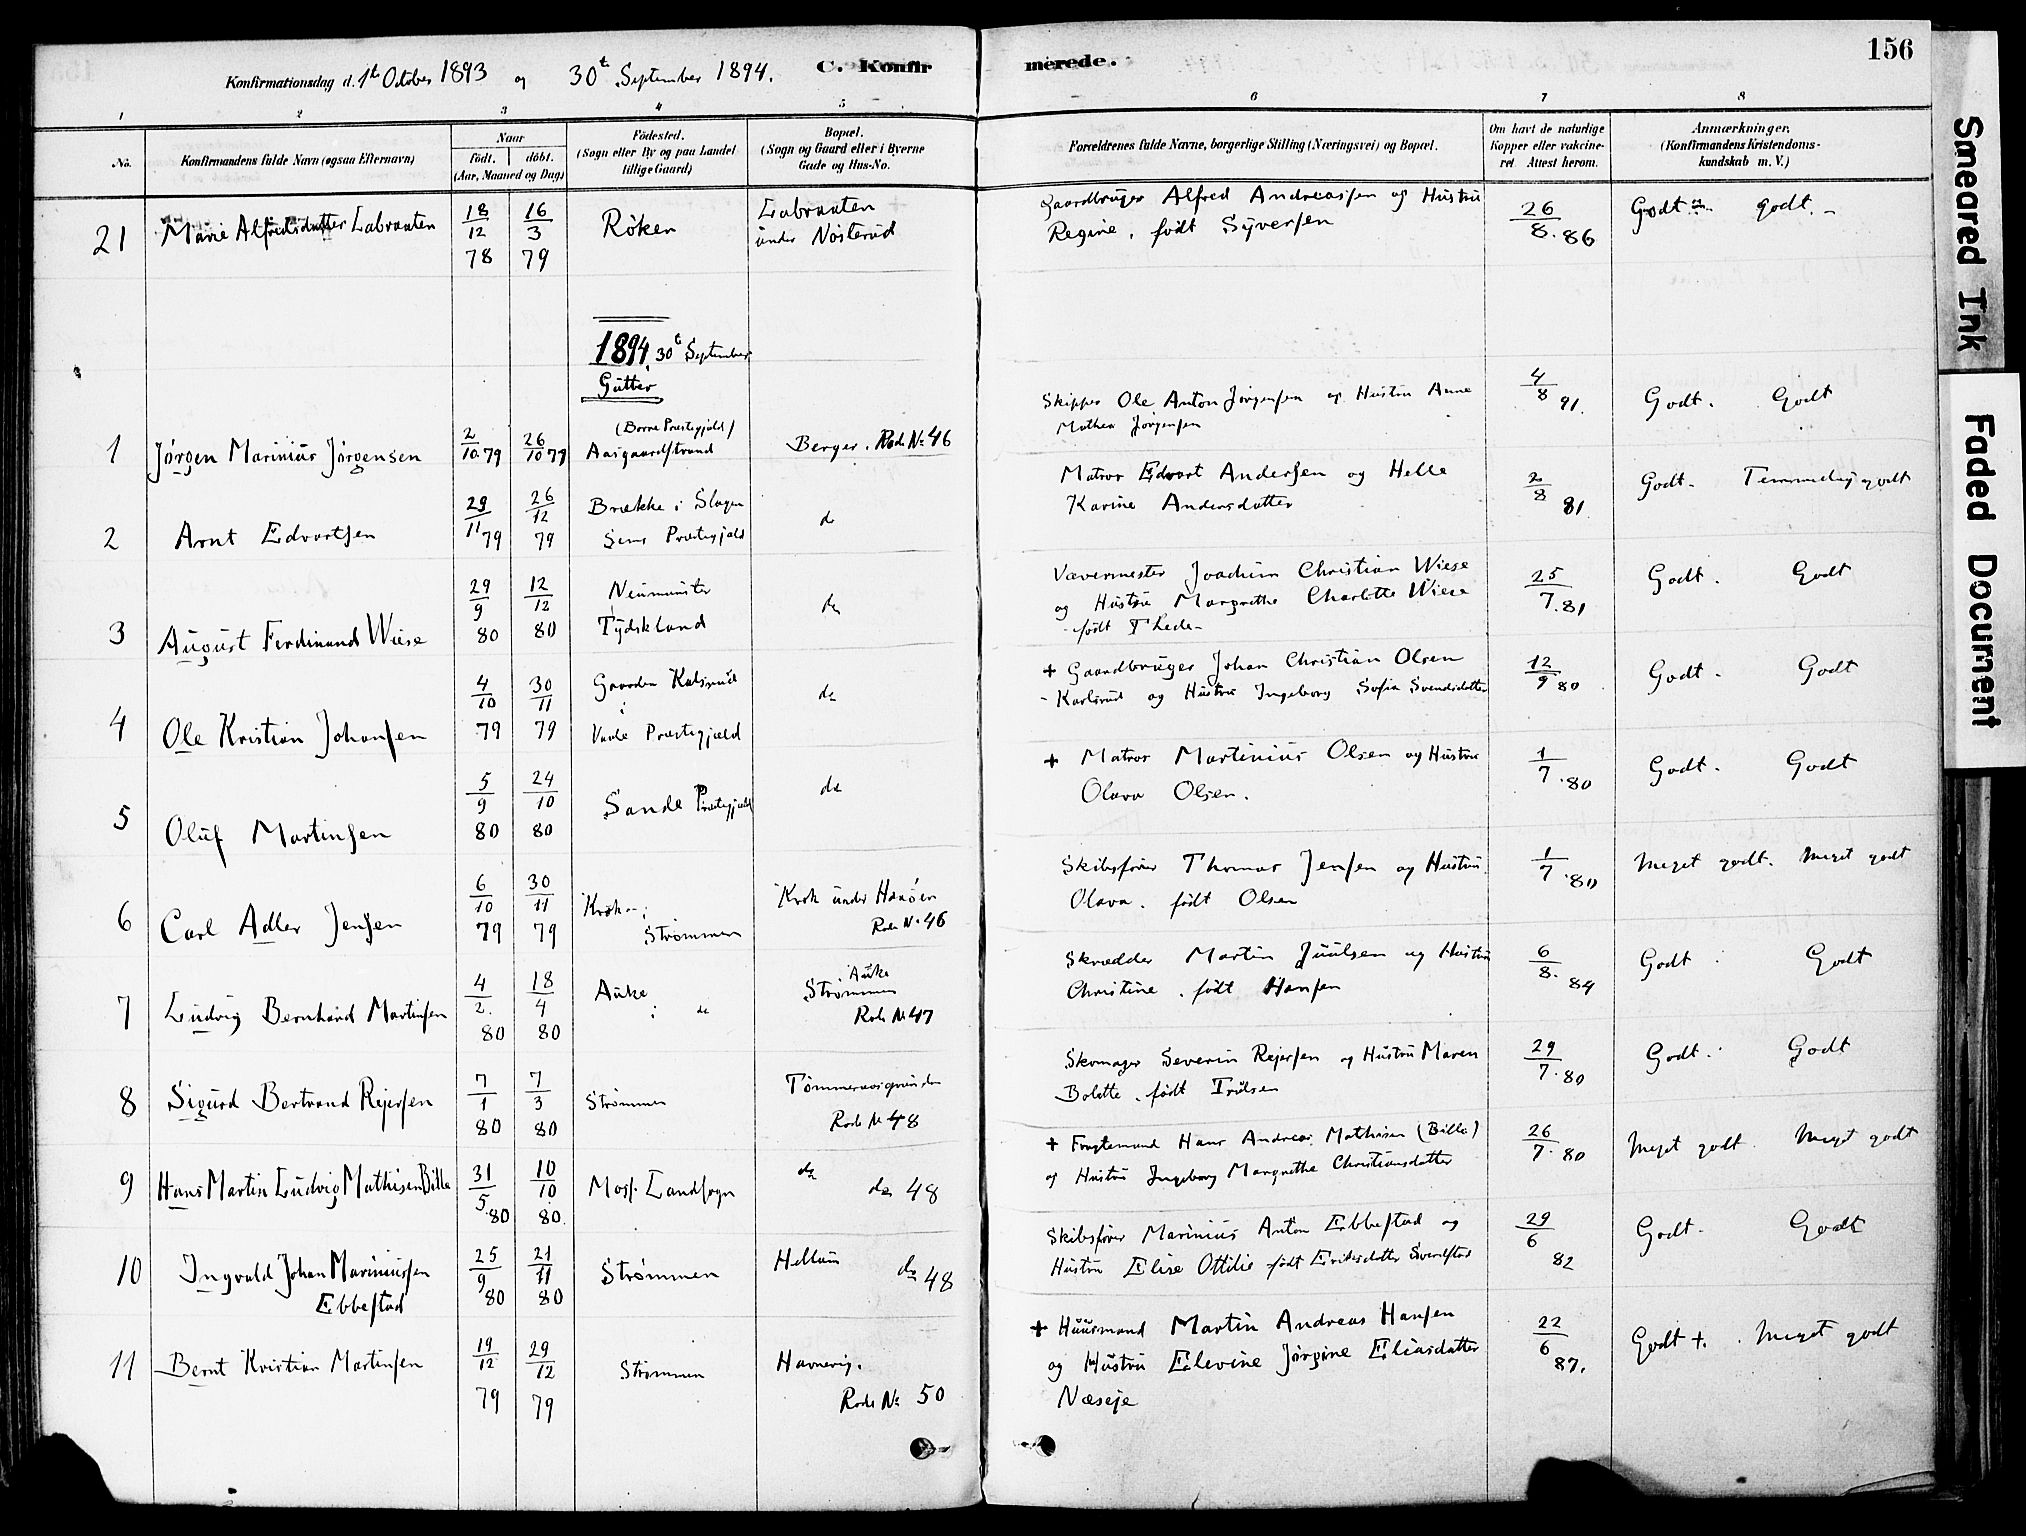 156
Smeared Ink
Faded Document
Konfirmationsdag d. 1te October 1893 og 30t September 1894. C. Konfirmerede.
1 2 3 4 5 6 7 8
No.
Konfirmandens fulde Navn (ogsaa Efternavn)
Naar
født. døbt.
(Aar, Maaned og Dag)
Fødested.
(Sogn eller By og paa Landet
tillige Gaard)
Bopæl.
(Sogn og Gaard eller i Byerne
Gade og Hus-No.
Forældrenes fulde Navne, borgerlige Stilling (Næringsvei) og Bopæl.
Om havt de naturlige
Kopper eller vaccine-
ret. Attest herom.
Anmærkninger.
(Konfirmandens Kristendoms-
kundskab m. V.)
21 Marie Alfredsdatter Labraaten 18/12 78 16/3 79 Röken Labraaten
under Nösterud
Gaardbruger Alfred Andreassen og Hustru
Regine, født Syversen
26/8.86 Godt godt.
1894 30t September
Gutter
1 Jørgen Marinius Jörgensen 2/10 79 26/10 79 (Borre Præstegjæld)
Aasgaardstrand Berger. Rode No 46
Skipper Ole Anton Jørgensen og Hustru Anne
Mathea Jørgensen
4/8 91. Godt. Godt
2 Arnt Edvartsen 29/11 79 26/12 79 Brække i Slagen
Sems Præstegjæld do
Matros Edvart Andersen og Helle
Karine Andersdatter
2/8 81 Godt. Temmelig godt
3 August Ferdinand Wiese 29/9 80 12/12 80 Neumünster
Tydskland do
Vævermester Joachim Christian Wiese
og Hustru Margrethe Charlotte Wiese
født Thede
25/7.81 Godt. Godt
4 Ole Kristian Johansen 4/10 79 30/11 79 Gaarden Kalsrud
i
Vaale Præstegjæld do
+ Gaardbruger Johan Christian Olsen
Karlsrud og Hustru Ingeborg Sofie Svendsdatter
12/9 80 Godt. Godt
5 Oluf Martinsen 5/9 80 24/10 80 Sande Præstegjæld do
+ Matros Martinius Olsen og Hustru
Olava Olsen.
1/7.80 Godt. Godt
6 Carl Adler Jensen 6/10 79 30/11 79 Krok i
Strømmen Krok under Hanöen
Rode No 46
Skibsfører Thomas Jensen og Hustru
Olava. født Olsen
1/7.80 Meget godt. Meget godt
7 Ludvig Bernhard Martinsen 4/2. 80 18/4 80 Auke
i do Auke
Strømmen
Rode No 47
Skrædder Martin Juulsen og Hustru
Christine. født Hansen
6/8. 84 Godt Godt
8 Sigurd Bertrand Rejersen 7/1 80 7/3 80 Strømmen Rode No 48
Skomager Severin Rejersen og Hustru Maren
Bolette. født Trulsen
29/7.80 Godt. Godt
9 Hans Martin Ludvig Mathisen Bille 31/5.80 10/10 80. Moss Landsogn do do 48
+ Fragtemand Hans Andreas Mathisen (Bille)
og Hustru Ingeborg Margrethe Christiansdatter
26/7.80 Meget godt. Meget godt
10 Ingvald Johan Mariniussen
Ebbestad 25/9 80 21/11 80 Strømmen Hellum do 48
Skibsfører Marinius Anton Ebbestad og
Hustru Elise Ottilie født Eriksdatter
29/6 82 Godt. Godt
11 Bernt Kristian Martinsen 19/12 79 29/12 79 Strømmen Havnevig.
Rode No 50
+ Huusmand Martin Andreas Hansen
og Hustru Elevine Jørgine Eliasdatter
Næseje
22/6 87. Godt +. Meget godt